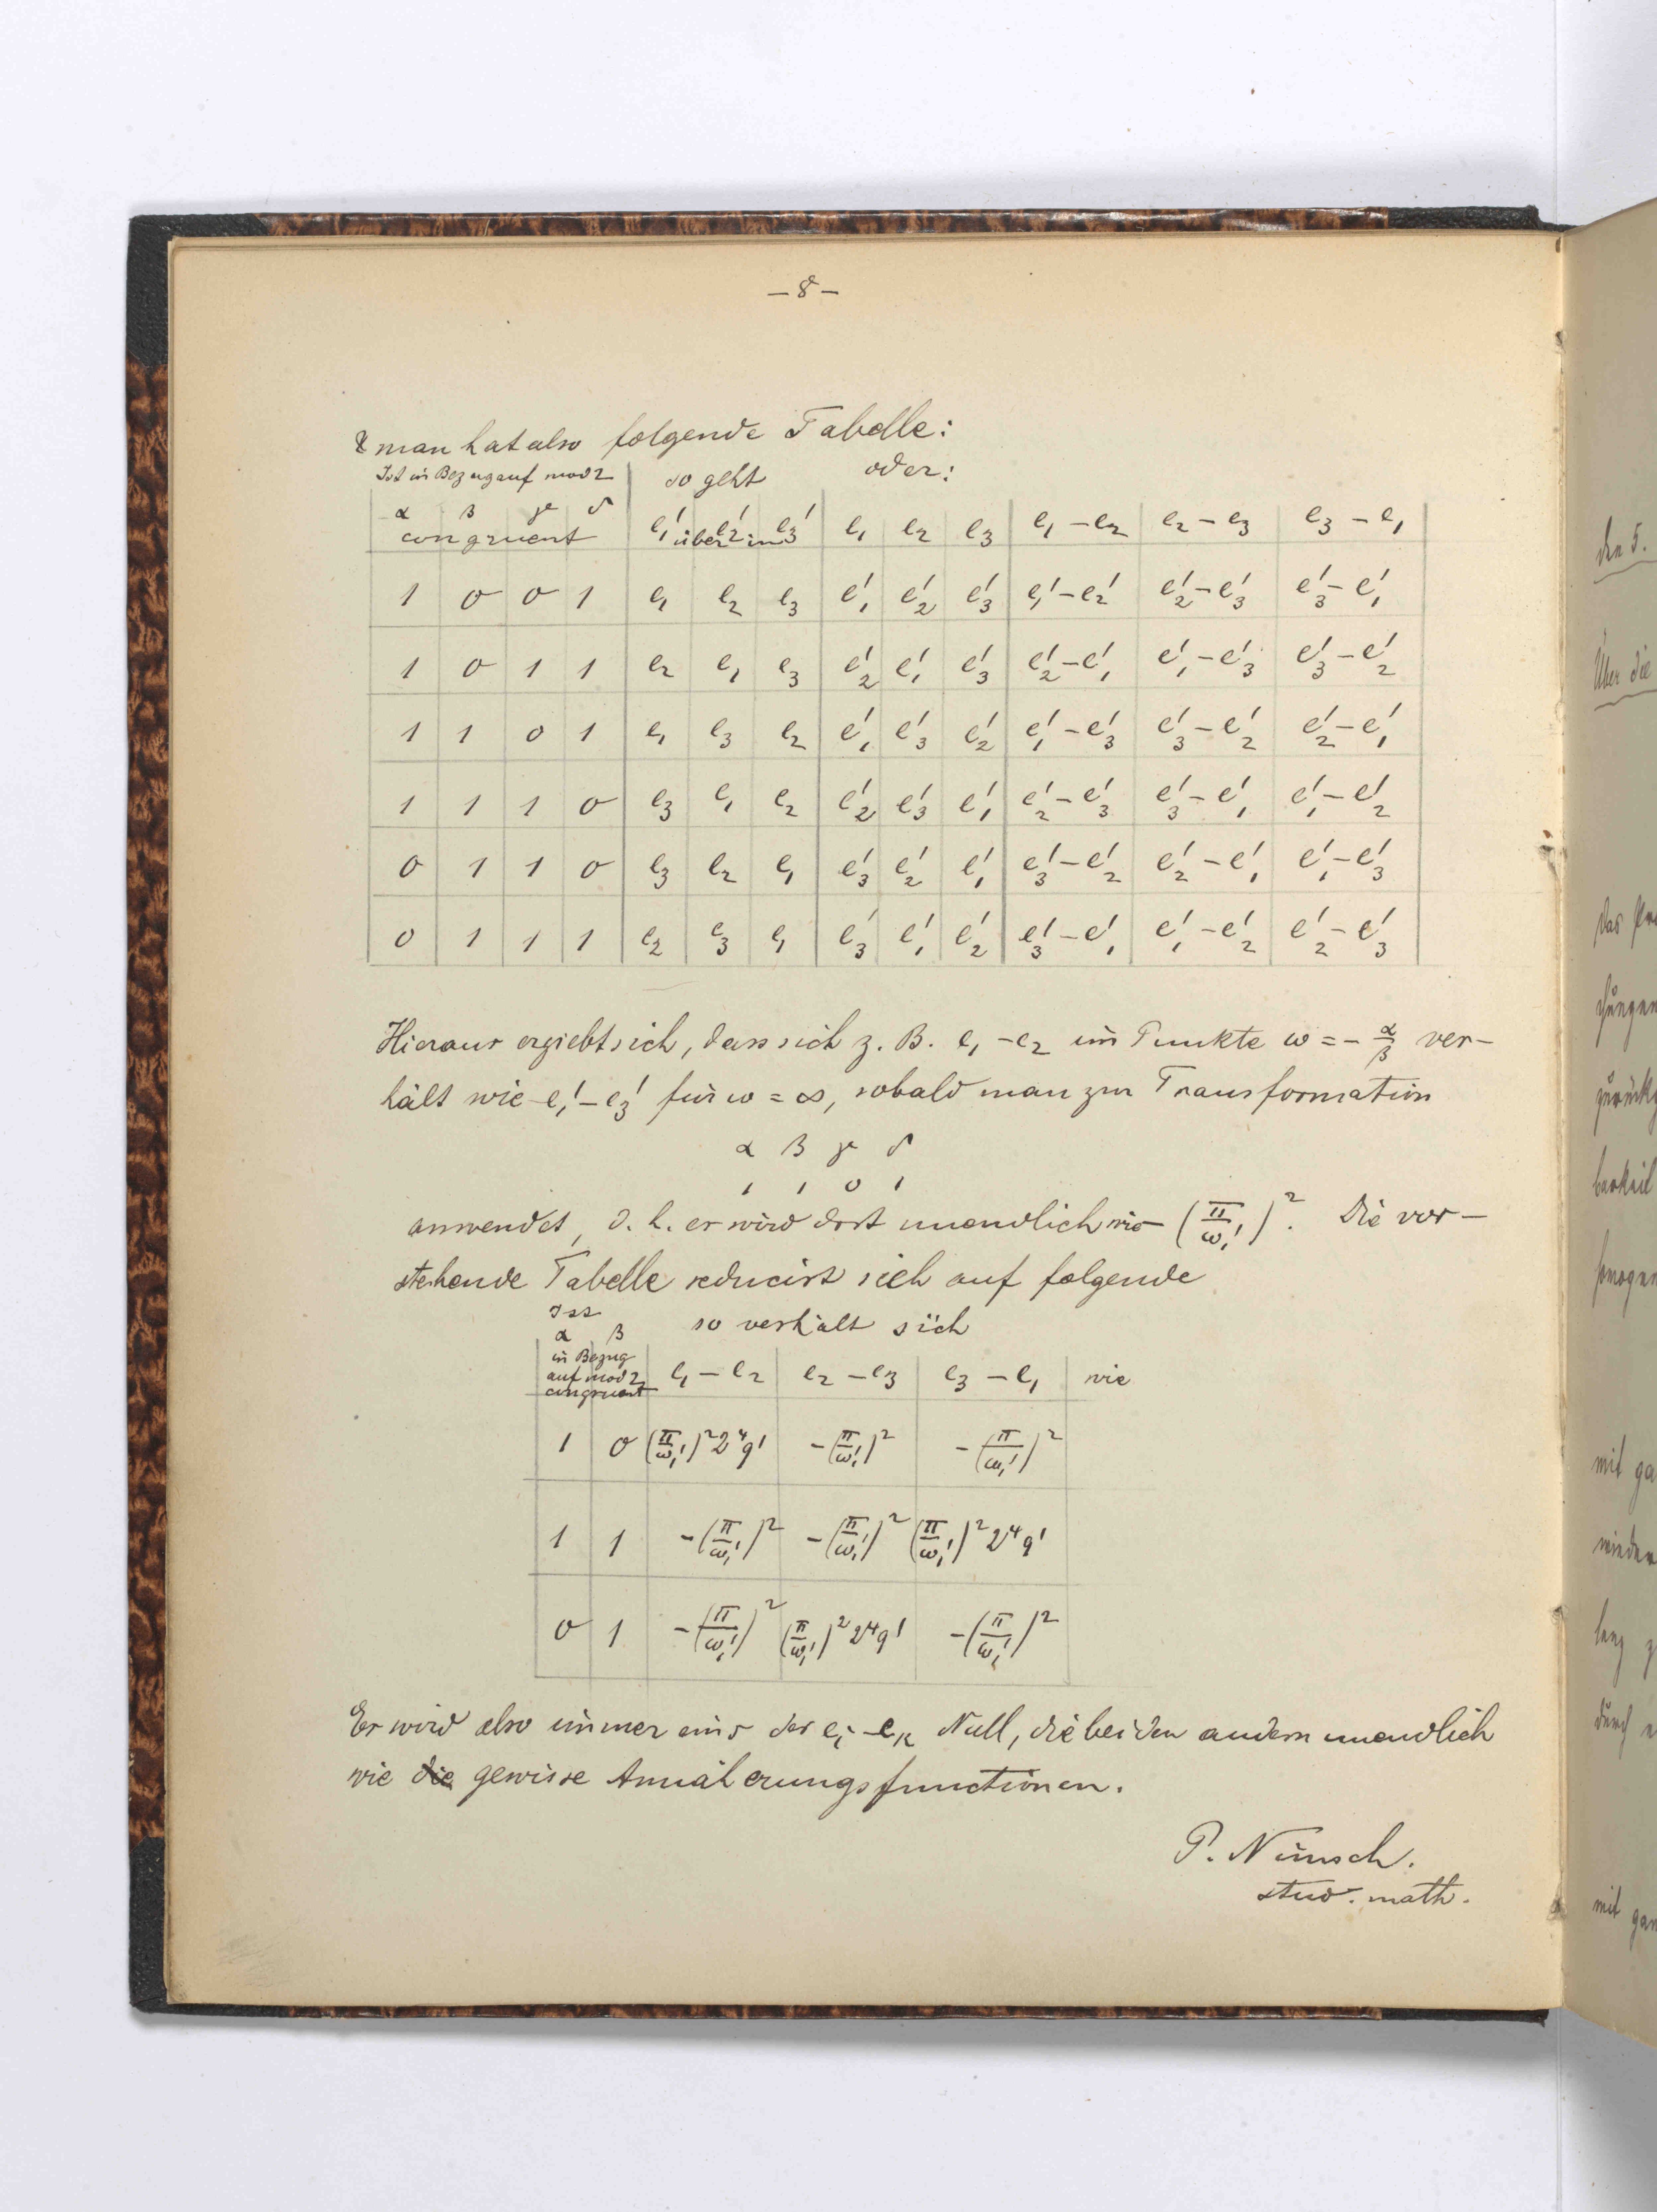 – 8 –
& man hat also folgende Tabelle:
Ist in Bezug auf mod 2 | so geht oder:
α β γ δ congruent | e₁' e₂' e₃' über in | e₁ e₂ e₃ | e₁ – e₂ | e₂ – e₃ | e₃ – e₁
1 0 0 1 | e₁ e₂ e₃ | e₁' e₂' e₃' | e₁' – e₂' | e₂' – e₃' | e₃' – e₁'
1 0 1 1 | e₂ e₁ e₃ | e₂' e₁' e₃' | e₂' – e₁' | e₁' – e₃' | e₃' – e₂'
1 1 0 1 | e₁ e₃ e₂ | e₁' e₃' e₂' | e₁' – e₃' | e₃' – e₂' | e₂' – e₁'
1 1 1 0 | e₃ e₁ e₂ | e₂' e₃' e₁' | e₂' – e₃' | e₃' – e₁' | e₁' – e₂'
0 1 1 0 | e₃ e₂ e₁ | e₃' e₂' e₁' | e₃' – e₂' | e₂' – e₁' | e₁' – e₃'
0 1 1 1 | e₂ e₃ e₁ | e₃' e₁' e₂' | e₃' – e₁' | e₁' – e₂' | e₂' – e₃'
Hieraus ergiebt sich, dass sich z. B. e₁ – e₂ im Punkte ω = – α/β ver–
hält wie e₁' – e₃' für ω = ∞, sobald man zur Transformation
α β γ δ
1 1 0 1
anwendet, d. h. es wird dort unendlich wie (π/ω₁')². Die vor–
stehende Tabelle reducirt sich auf folgende
Ist
α β so verhält sich
in Bezug
auf mod 2 e₁ – e₂ | e₂ – e₃ | e₃ – e₁ | wie
congruent
1 0 | (π/ω₁')² 2⁴q' | –(π/ω₁')² | –(π/ω₁')²
1 1 | –(π/ω₁')² | –(π/ω₁')² | (π/ω₁')² 2⁴q'
0 1 | –(π/ω₁')² | (π/ω₁')² 2⁴q' | –(π/ω₁')²
Es wird also immer eins der eᵢ – eₖ Null, die beiden andern unendlich
wie die gewisse Annäherungsfunctionen.
P. Nimsch.
stud. math.
den 5.
Über die
das
zurück
mit ga
wieder
lang
durch
mit gan